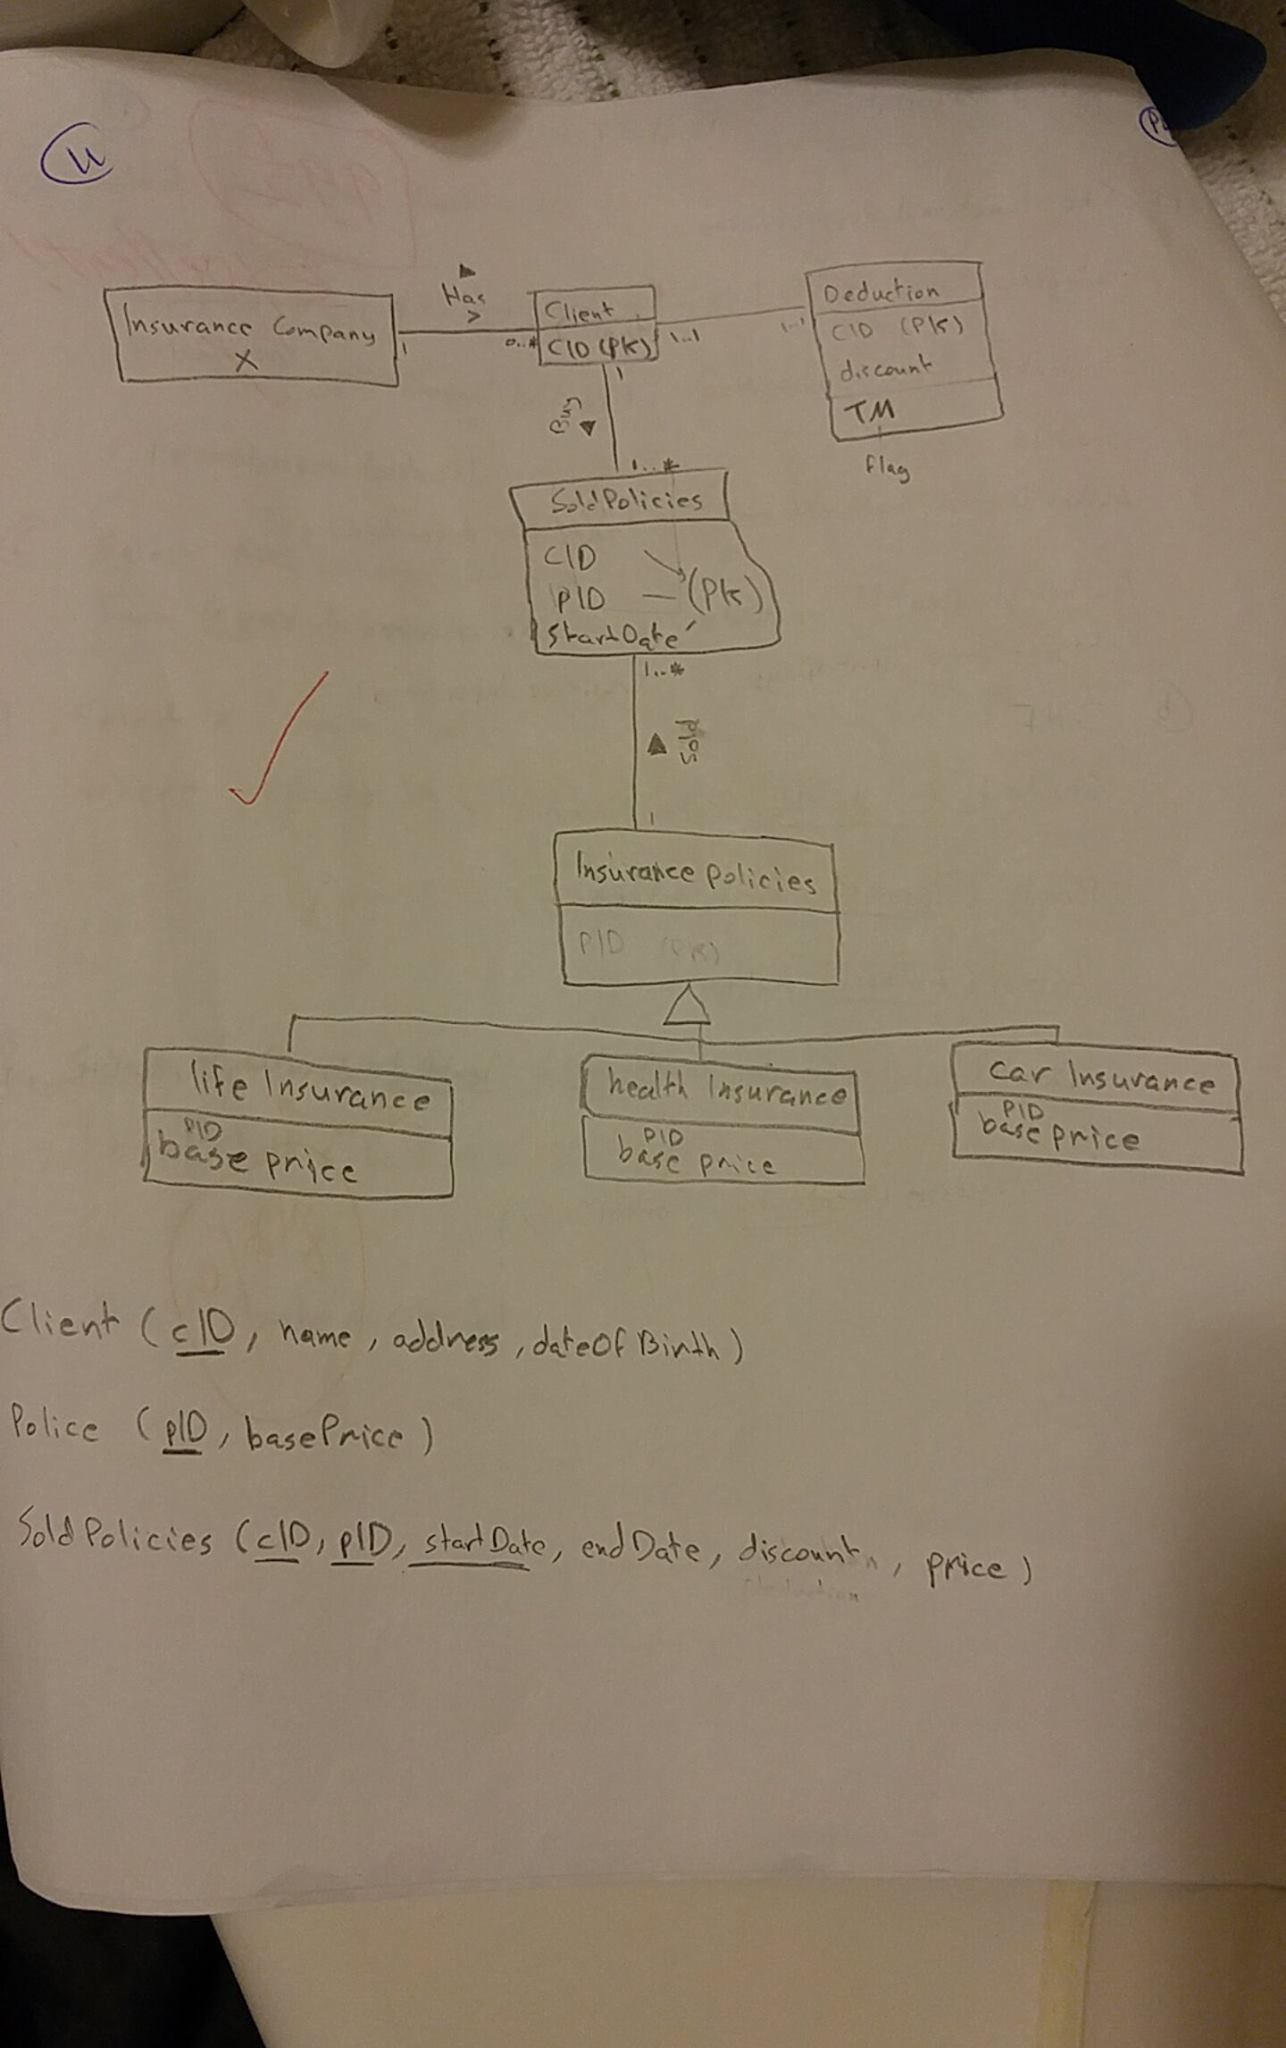 Has
>
Insurance Company
X
1
0..*
Client
CID (PK)
1..1
1..1
Deduction
CID (PK)
discount
TM
flag
1
Buy
1..*
SoldPolicies
CID
PID — (PK)
startDate
1..*
Sold
1
Insurance policies
PID (PK)
life Insurance
PID
base price
health Insurance
PID
base price
car Insurance
PID
base price
Client (cID, name, address, dateOfBirth)
Police (pID, basePrice)
SoldPolicies (cID, pID, startDate, endDate, discount, price)